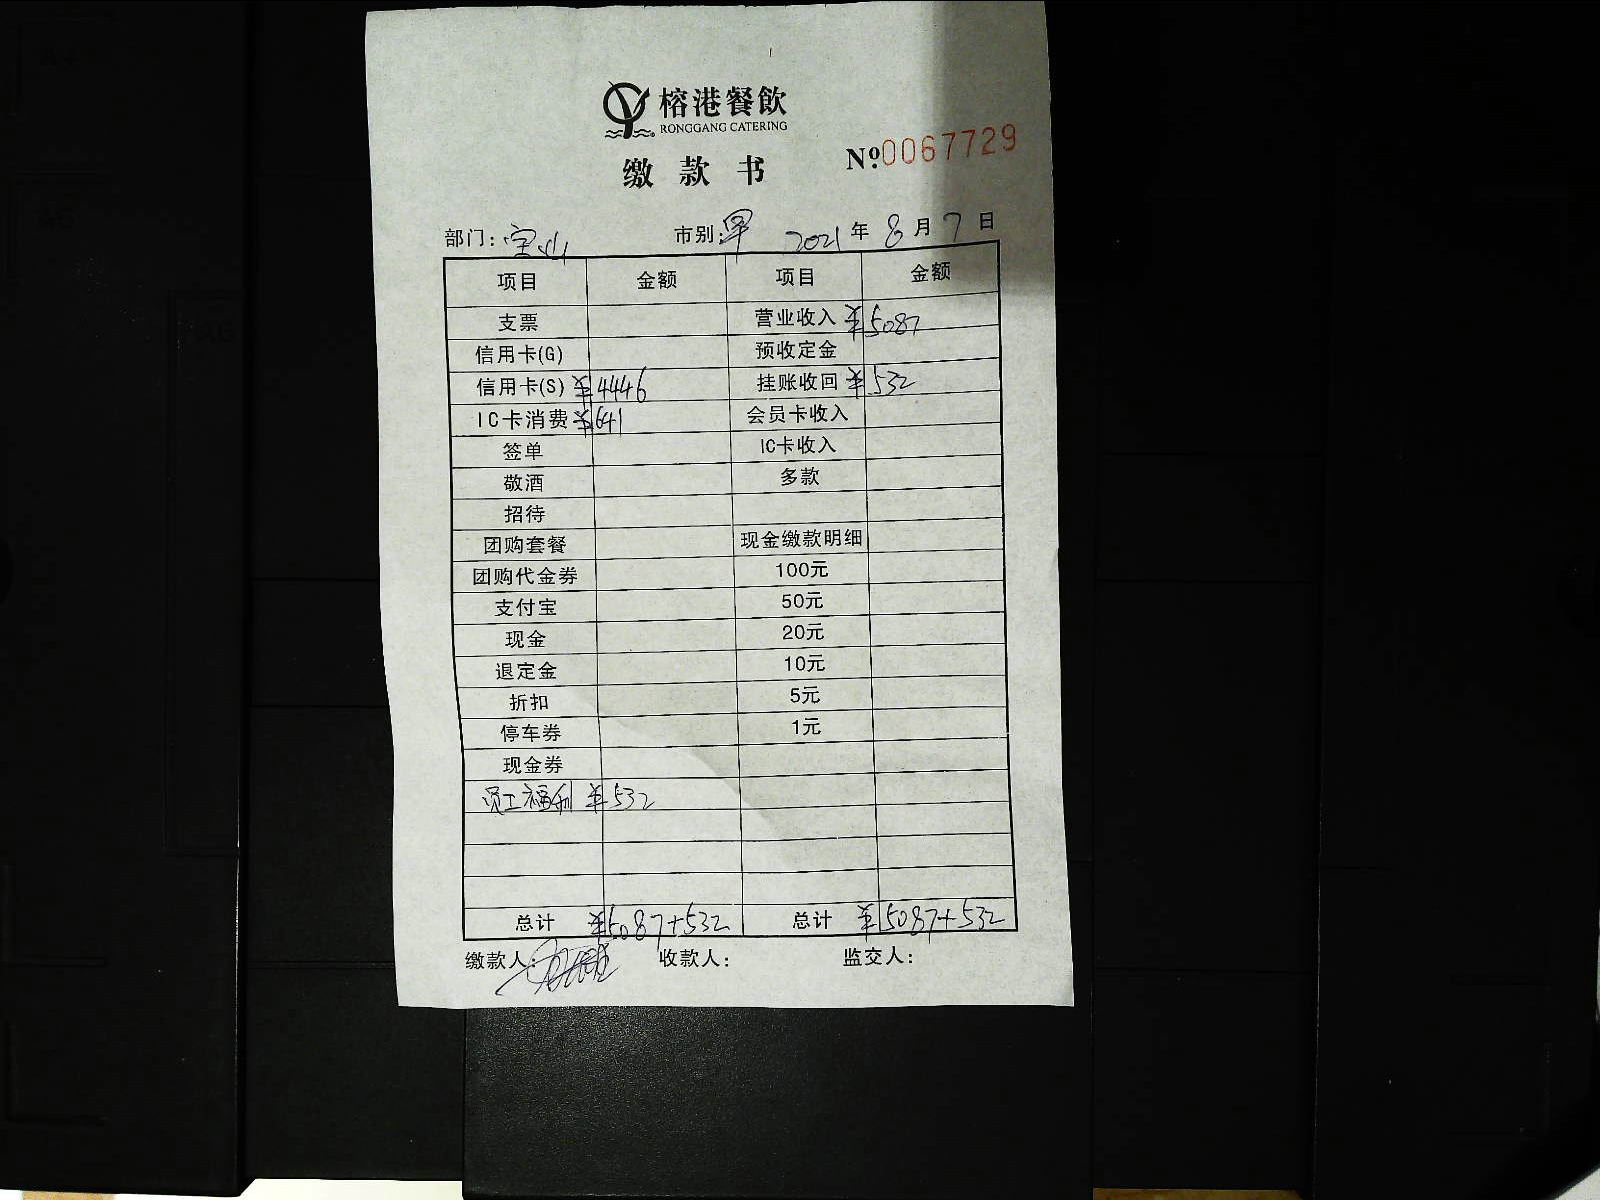 榕港餐飲
RONGGANG CATERING
缴款书 №0067729
部门：宝山 市别：早 2021年8月7日
项目 金额 项目 金额
支票 营业收入 ¥5087
信用卡(G) 预收定金
信用卡(S) ¥4446 挂账收回 ¥532
IC卡消费 ¥641 会员卡收入
签单 IC卡收入
敬酒 多款
招待
团购套餐 现金缴款明细
团购代金券 100元
支付宝 50元
现金 20元
退定金 10元
折扣 5元
停车券 1元
现金券
员工福利 ¥532
总计 ¥5087+532 总计 ¥5087+532
缴款人： 收款人： 监交人：